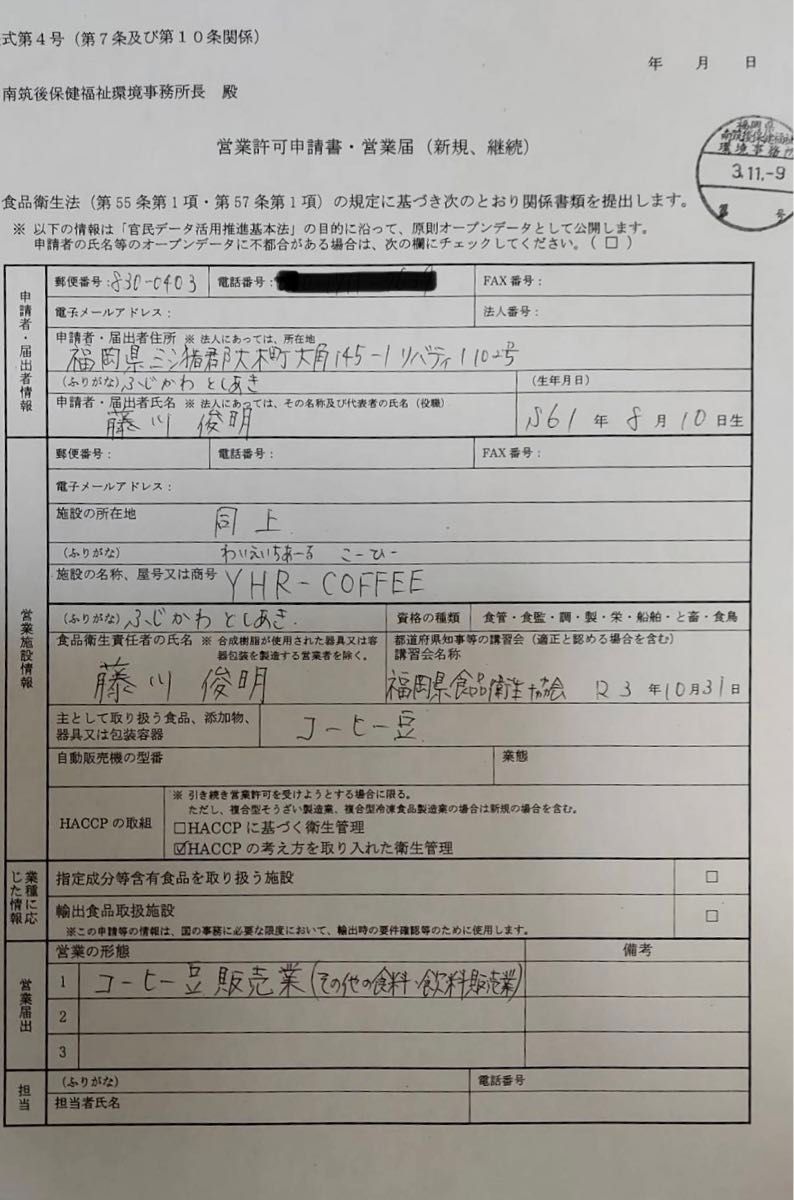 式第4号（第7条及び第10条関係）
年　月　日
南筑後保健福祉環境事務所長　殿
営業許可申請書・営業届（新規、継続）
福岡県
南筑後保健福祉
環境事務所
3.11.-9
第　号
食品衛生法（第55条第1項・第57条第1項）の規定に基づき次のとおり関係書類を提出します。
※ 以下の情報は「官民データ活用推進基本法」の目的に沿って、原則オープンデータとして公開します。
申請者の氏名等のオープンデータに不都合がある場合は、次の欄にチェックしてください。（□）
申請者・届出者情報
郵便番号：830-0403　電話番号：　FAX番号：
電子メールアドレス：　法人番号：
申請者・届出者住所　※ 法人にあっては、所在地
福岡県三潴郡大木町大角145-1リバティ110号
（ふりがな）ふじかわ としあき　（生年月日）
申請者・届出者氏名　※ 法人にあっては、その名称及び代表者の氏名（役職）
藤川 俊明　S61年 8月 10日生
営業施設情報
郵便番号：　電話番号：　FAX番号：
電子メールアドレス：
施設の所在地
同上
（ふりがな）　わいえいちあーる こーひー
施設の名称、屋号又は商号　YHR-COFFEE
（ふりがな）ふじかわ としあき.　資格の種類　食管・食監・調・製・栄・船舶・と畜・食鳥
食品衛生責任者の氏名　※ 合成樹脂が使用された器具又は容
器包装を製造する営業者を除く。
藤川 俊明
都道府県知事等の講習会（適正と認める場合を含む）
講習会名称
福岡県食品衛生協会　R3年10月31日
主として取り扱う食品、添加物、
器具又は包装容器
コーヒー豆
自動販売機の型番　業態
HACCPの取組
※ 引き続き営業許可を受けようとする場合に限る。
ただし、複合型そうざい製造業、複合型冷凍食品製造業の場合は新規の場合を含む。
□HACCPに基づく衛生管理
☑HACCPの考え方を取り入れた衛生管理
業種に応じた情報
指定成分等含有食品を取り扱う施設　□
輸出食品取扱施設　□
※この申請等の情報は、国の事務に必要な限度において、輸出時の要件確認等のために使用します。
営業届出
営業の形態　備考
1　コーヒー豆販売業(その他の食料・飲料販売業)
2
3
担当
（ふりがな）　電話番号
担当者氏名